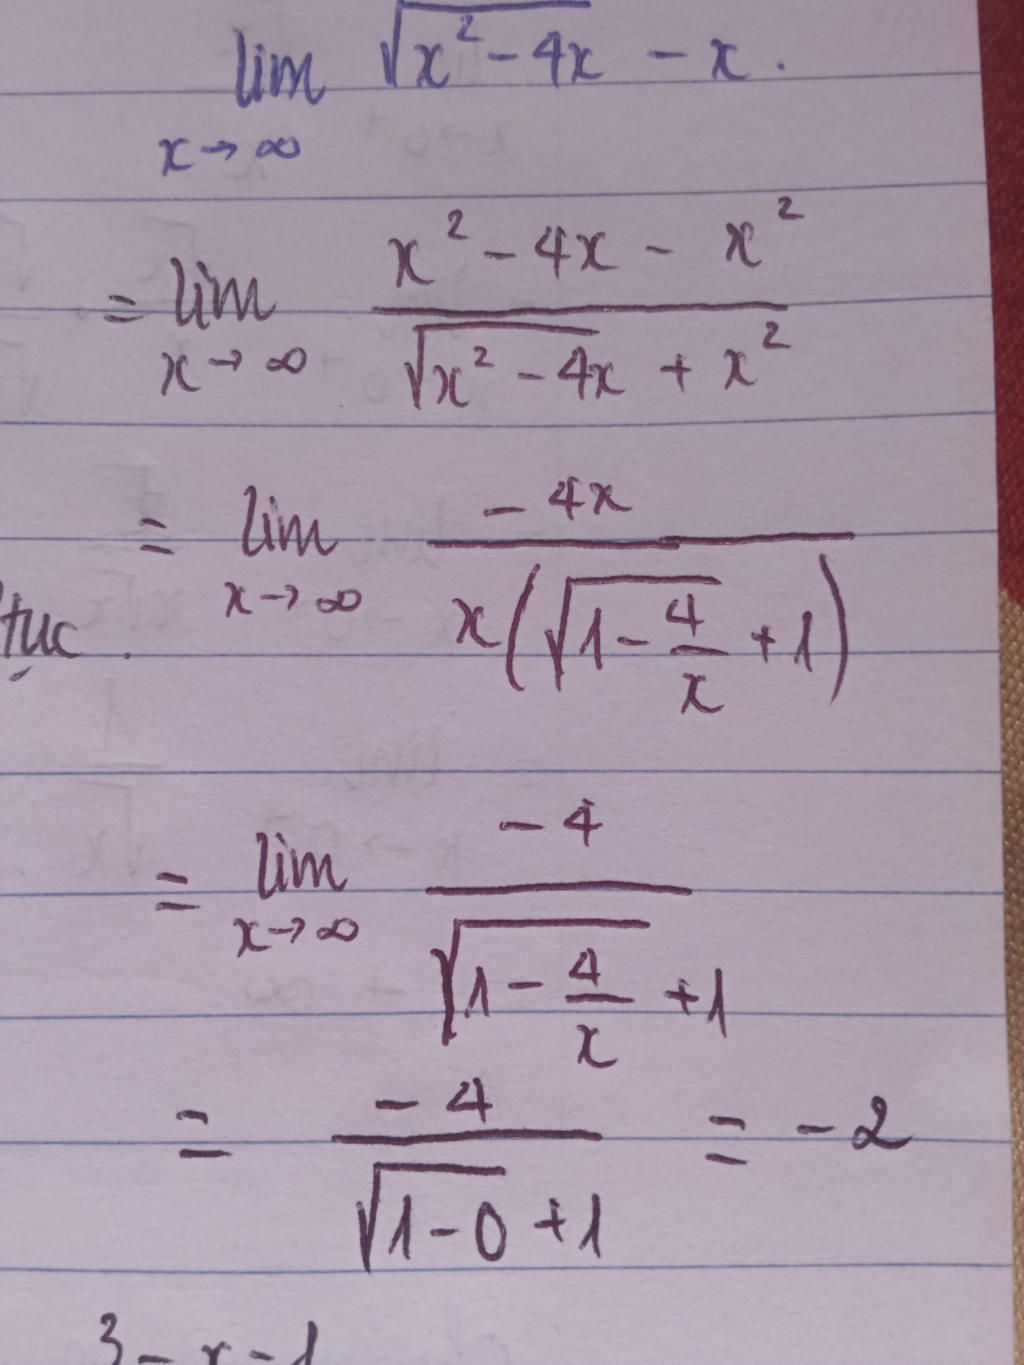 lim x→∞ √(x² - 4x) - x.
= lim x→∞ (x² - 4x - x²) / (√(x² - 4x) + x²)
= lim x→∞ -4x / (x(√(1 - 4/x) + 1))
tục.
= lim x→∞ -4 / (√(1 - 4/x) + 1)
= -4 / (√(1 - 0) + 1) = -2
3 - x - 1